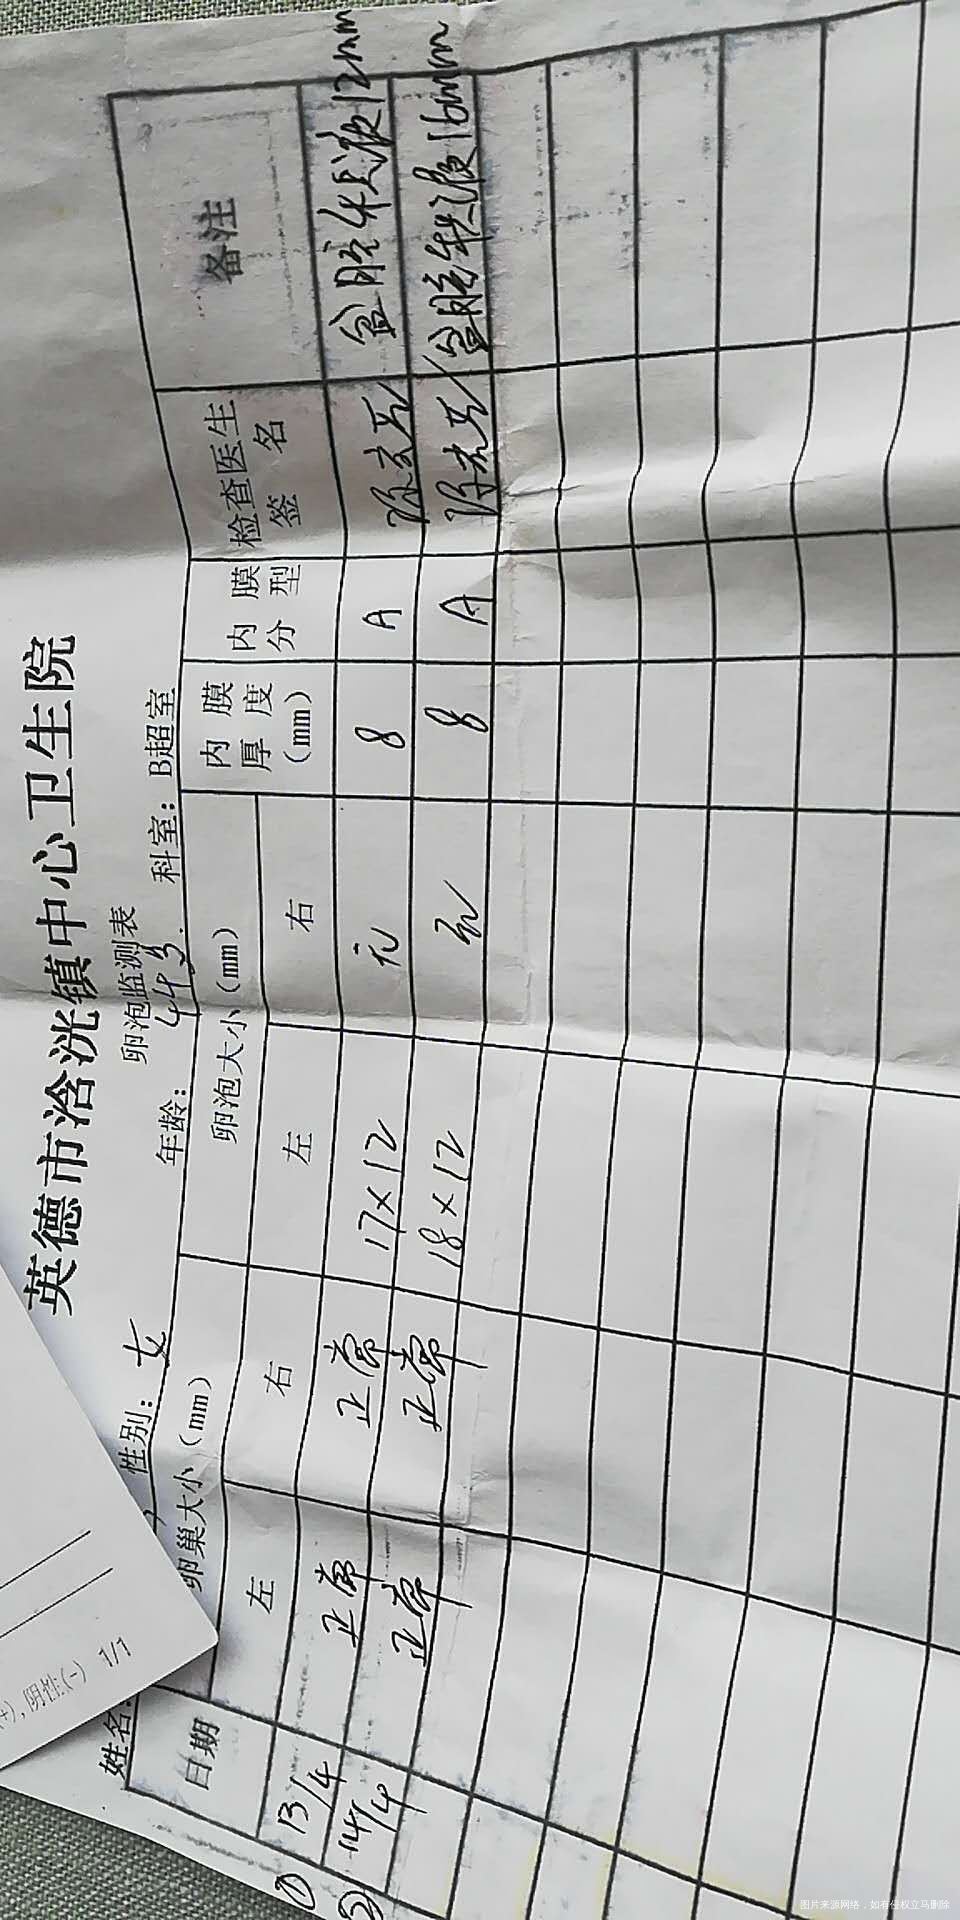 英德市浛洸镇中心卫生院
卵泡监测表
姓名: 性别: 女 年龄: 44岁. 科室: B超室
日期 卵巢大小(mm) 卵泡大小(mm) 内膜厚度(mm) 内膜分型 检查医生签名 备注
左 右 左 右
① 13/4 正常 正常 17×12 无 8 A 盆腔积液12mm
② 14/4 正常 正常 18×12 无 8 A 盆腔积液16mm
(+),阴性:(-) 1/1
图片来源网络,如有侵权立马删除